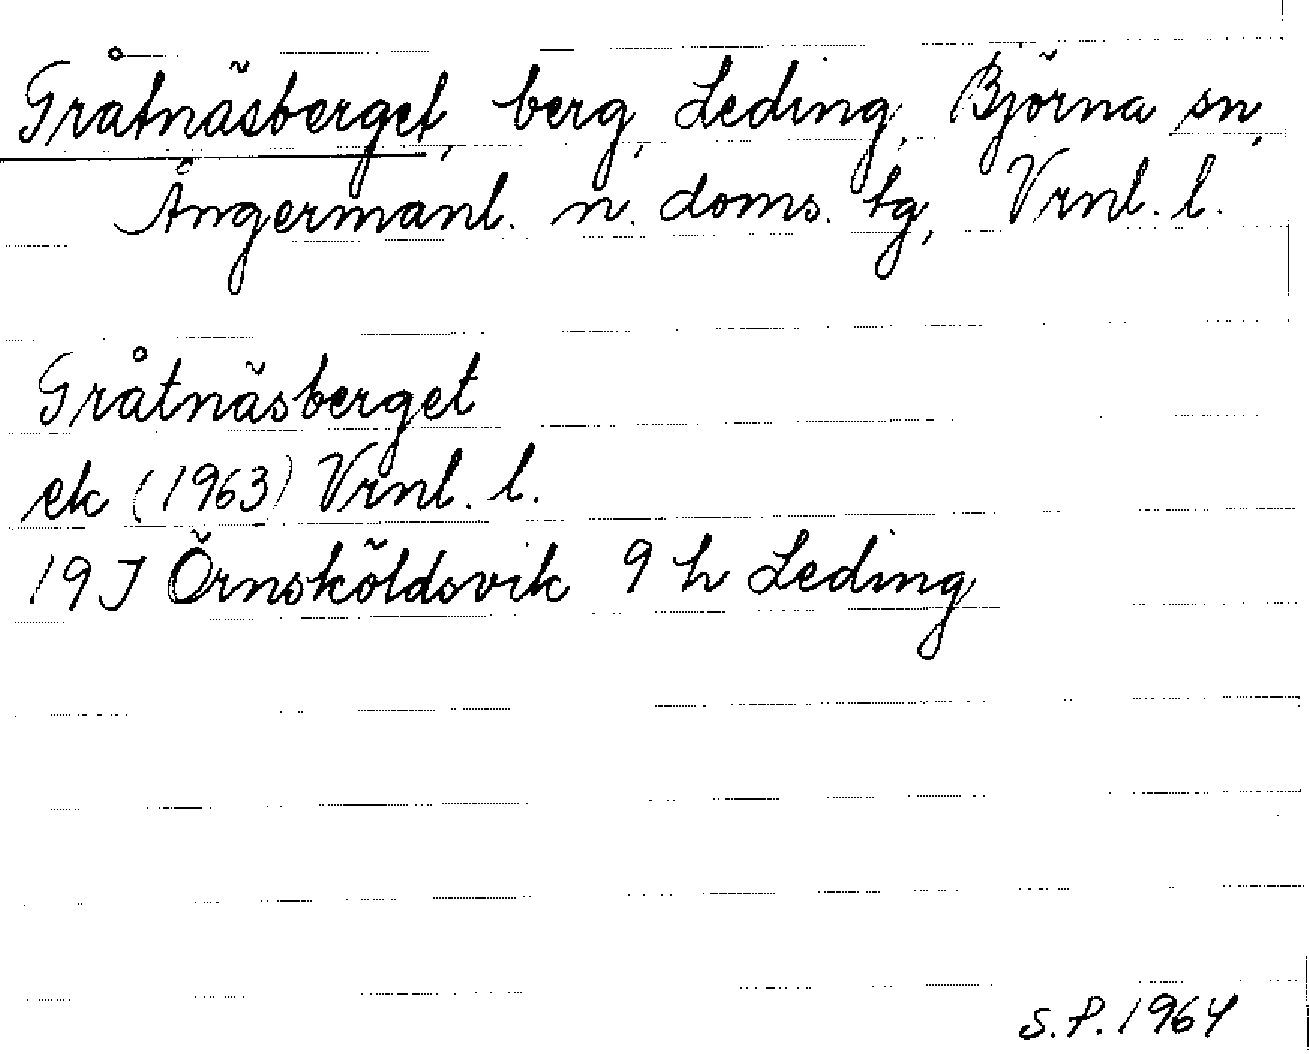 Gråtnäsberget, berg, Leding, Björna sn,
Ångermanl. n. doms. tg, Vrnl. l.
Gråtnäsberget
ek (1963) Vrnl. l.
19 J Örnsköldsvik 9 h Leding
S.P. 1964